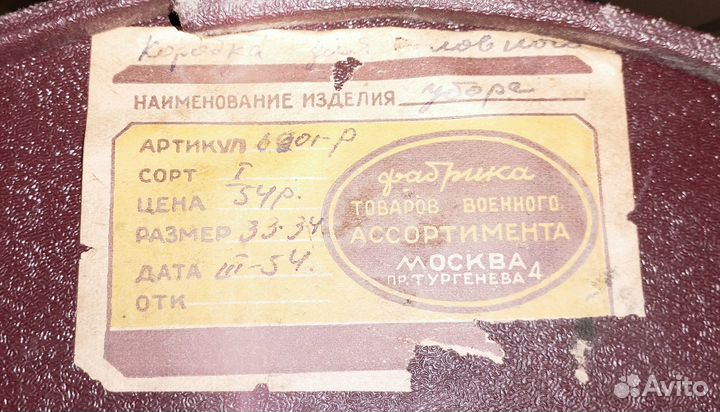 Коробка для головного
НАИМЕНОВАНИЕ ИЗДЕЛИЯ убора
АРТИКУЛ
СОРТ I
ЦЕНА 54р.
РАЗМЕР 33-34
ДАТА III-54.
ОТК
фабрика
ТОВАРОВ ВОЕННОГО
АССОРТИМЕНТА
МОСКВА
ПР. ТУРГЕНЕВА 4
Avito